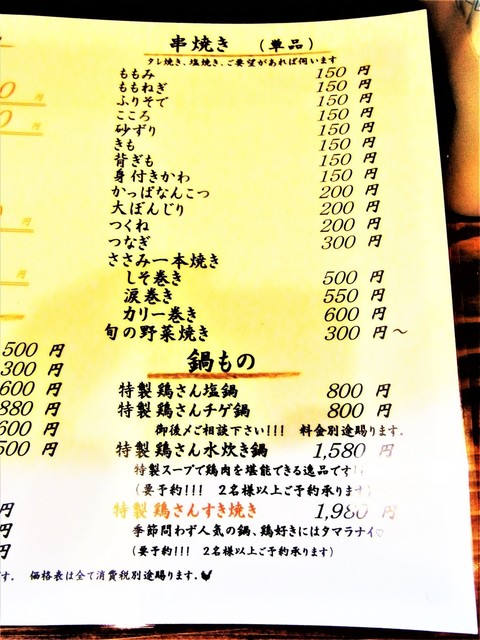 串焼き （単品）
タレ焼き、塩焼き、ご要望があれば伺います
ももみ 150 円
ももねぎ 150 円
ふりそで 150 円
こころ 150 円
砂ずり 150 円
きも 150 円
背ぎも 150 円
身付きかわ 150 円
かっぱなんこつ 200 円
大ぼんじり 200 円
つくね 200 円
つなぎ 300 円
ささみ一本焼き
しそ巻き 500 円
涙巻き 550 円
カリー巻き 600 円
旬の野菜焼き 300 円～
鍋もの
特製鶏さん塩鍋 800 円
特製鶏さんチゲ鍋 800 円
御後〆ご相談下さい!!! 料金別途賜ります。
特製鶏さん水炊き鍋 1,580 円
特製スープで鶏肉を堪能できる逸品です!
（要予約!!! 2名様以上ご予約承ります）
特製鶏さんすき焼き 1,980 円
季節問わず人気の鍋、鶏好きにはタマラナイ♡
（要予約!!! 2名様以上ご予約承ります）
0 円
0 円
円
円
500 円
300 円
600 円
880 円
600 円
500 円
円
円
円
す。 価格表は全て消費税別途賜ります。